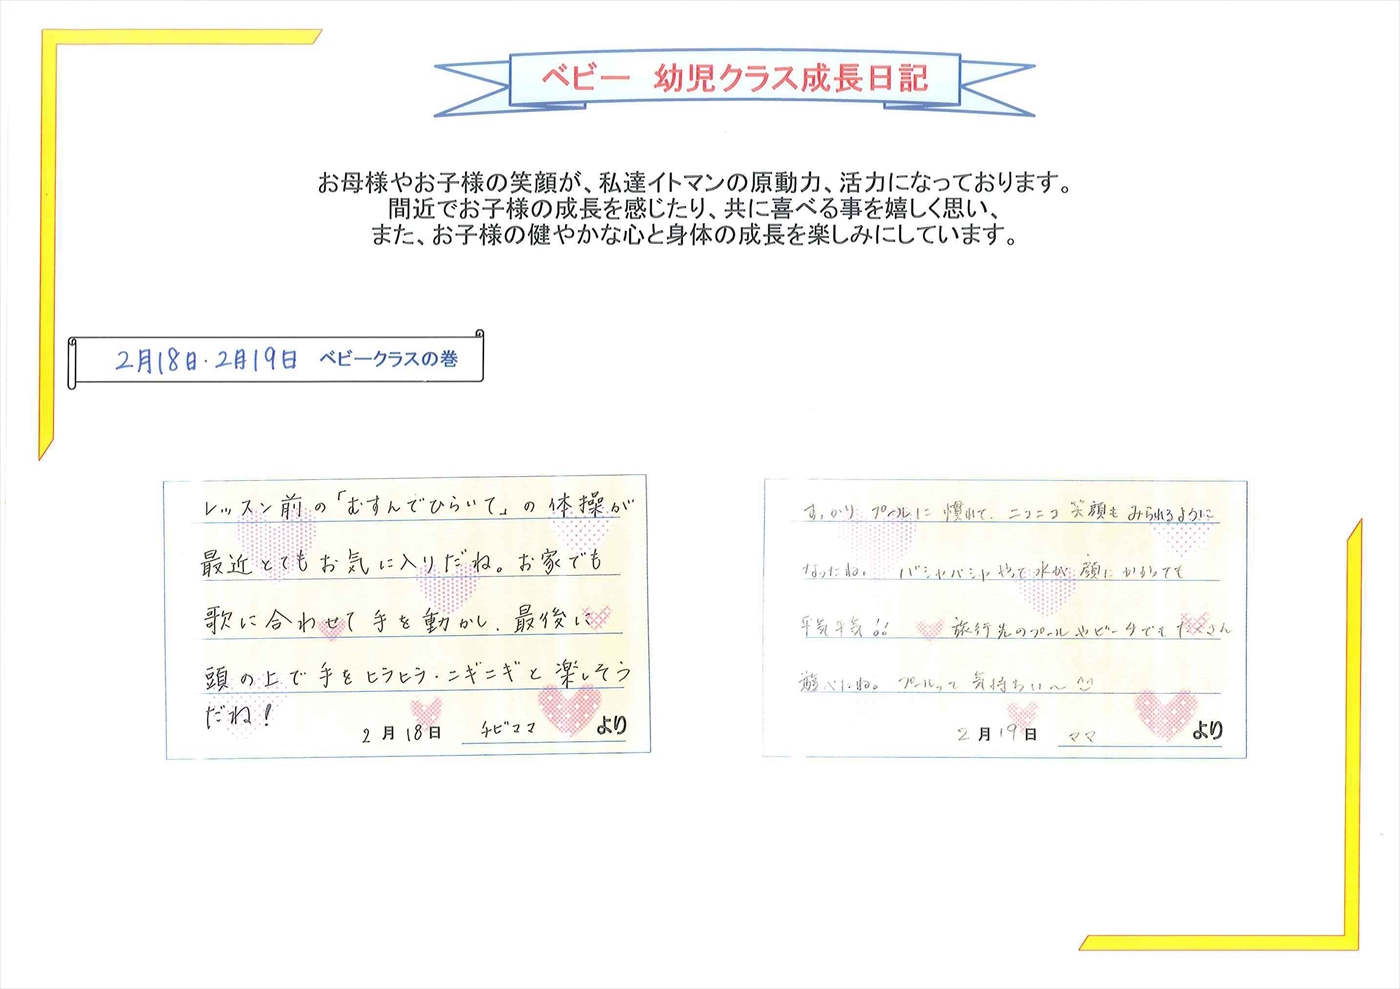 ベビー　幼児クラス成長日記
お母様やお子様の笑顔が、私達イトマンの原動力、活力になっております。
間近でお子様の成長を感じたり、共に喜べる事を嬉しく思い、
また、お子様の健やかな心と身体の成長を楽しみにしています。
2月18日・2月19日　ベビークラスの巻
レッスン前の「むすんでひらいて」の体操が
最近とてもお気に入りだね。お家でも
歌に合わせて手を動かし、最後に
頭の上で手をヒラヒラ・ニギニギと楽しそう
だね！
2月18日　チビママ　より
すっかりプールに慣れて、ニコニコ笑顔もみられるように
なったね。バシャバシャやって水が顔にかかっても
平気平気!!　旅行先のプールやビーチでもたくさん
遊べたね。プールって気持ちい〜
2月19日　ママ　より